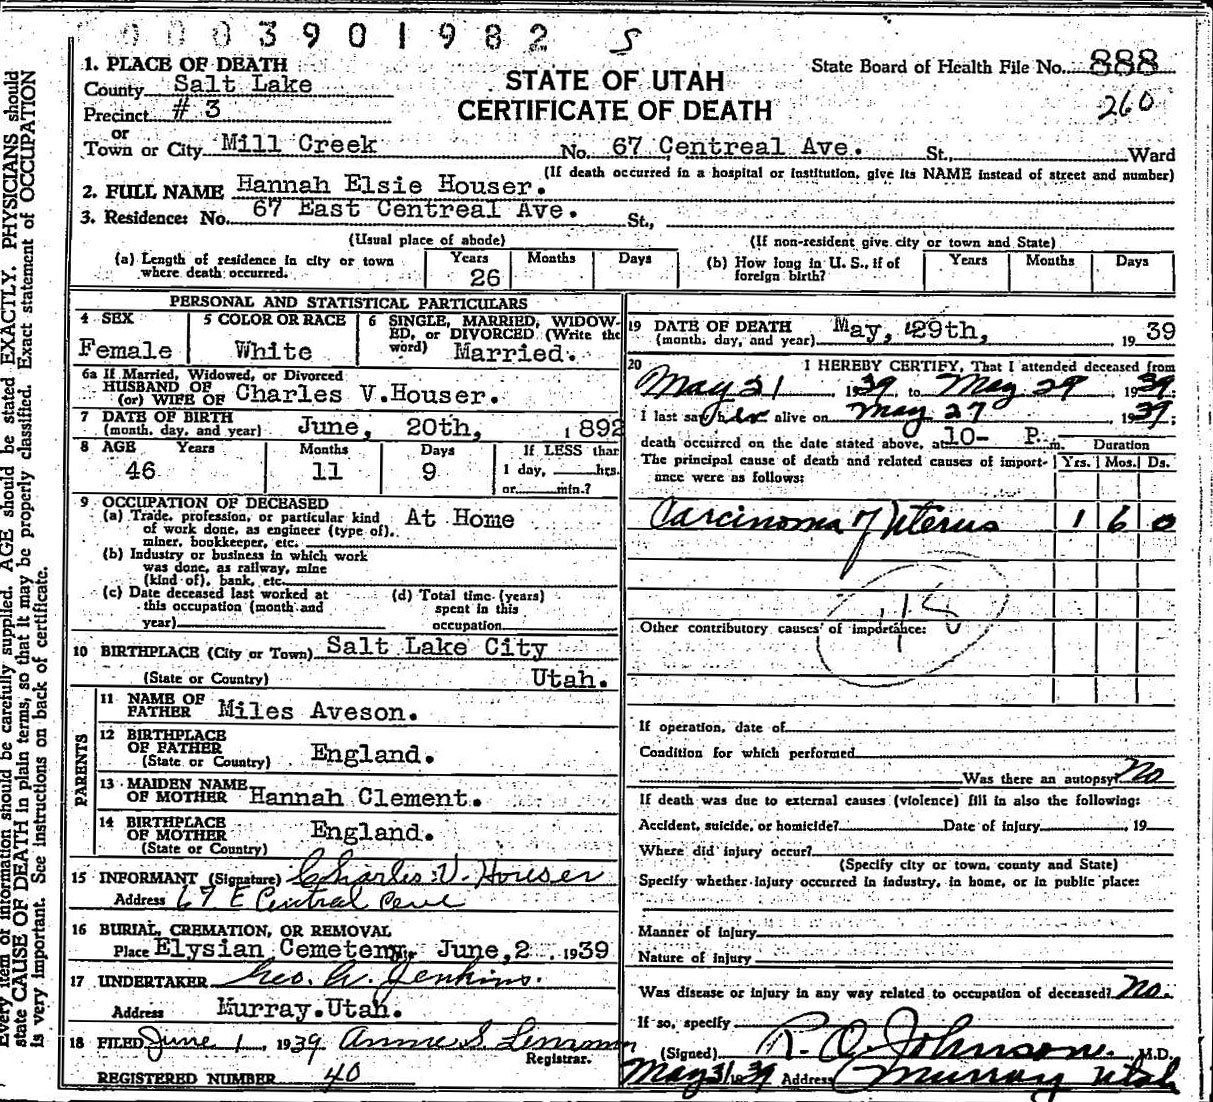 0003901982 S
1. PLACE OF DEATH
County Salt Lake
Precinct # 3
or
Town or City Mill Creek No. 67 Centreal Ave. St., Ward
STATE OF UTAH
CERTIFICATE OF DEATH
State Board of Health File No. 888
260
(If death occurred in a hospital or institution, give its NAME instead of street and number)
2. FULL NAME Hannah Elsie Houser.
3. Residence: No. 67 East Centreal Ave. St.,
(Usual place of abode) (If non-resident give city or town and State)
(a) Length of residence in city or town where death occurred. Years 26 Months Days
(b) How long in U. S., if of foreign birth? Years Months Days
PERSONAL AND STATISTICAL PARTICULARS
4 SEX Female
5 COLOR OR RACE White
6 SINGLE, MARRIED, WIDOWED, or DIVORCED (Write the word) Married.
6a If Married, Widowed, or Divorced
HUSBAND OF
(or) WIFE OF Charles V.Houser.
7 DATE OF BIRTH
(month, day, and year) June, 20th, 1892
8 AGE Years 46 Months 11 Days 9 If LESS than 1 day, hrs. or min.?
9 OCCUPATION OF DECEASED
(a) Trade, profession, or particular kind of work done, as engineer (type of), miner, bookkeeper, etc. At Home
(b) Industry or business in which work was done, as railway, mine (kind of), bank, etc.
(c) Date deceased last worked at this occupation (month and year)
(d) Total time (years) spent in this occupation
10 BIRTHPLACE (City or Town) Salt Lake City
(State or Country) Utah.
PARENTS
11 NAME OF FATHER Miles Aveson.
12 BIRTHPLACE OF FATHER (State or Country) England.
13 MAIDEN NAME OF MOTHER Hannah Clement.
14 BIRTHPLACE OF MOTHER (State or Country) England.
15 INFORMANT (Signature) Charles V. Houser
Address 67 E Central Ave
16 BURIAL, CREMATION, OR REMOVAL
Place Elysian Cemetery, June,2 1939
17 UNDERTAKER Geo. W. Jenkins.
Address Murray.Utah.
18 FILED June 1, 1939 Annie S.
Registrar.
REGISTERED NUMBER 40
19 DATE OF DEATH
(month, day, and year) May, 29th, 1939
20 I HEREBY CERTIFY, That I attended deceased from
May 21 1939, to May 29 1939
I last saw her alive on May 27 1939,
death occurred on the date stated above, at 10- P. m.
The principal cause of death and related causes of importance were as follows: Duration Yrs. Mos. Ds.
Carcinoma of Uterus 1 6 0
Other contributory causes of importance:
If operation, date of
Condition for which performed
Was there an autopsy? No
If death was due to external causes (violence) fill in also the following:
Accident, suicide, or homicide? Date of injury , 19
Where did injury occur?
(Specify city or town, county and State)
Specify whether injury occurred in industry, in home, or in public place:
Manner of injury
Nature of injury
Was disease or injury in any way related to occupation of deceased? No.
If so, specify
(Signed) R. O. Johnson. M.D.
May 31 1939 Address Murray Utah
Every item of information should be carefully supplied. AGE should be stated EXACTLY. PHYSICIANS should
state CAUSE OF DEATH in plain terms, so that it may be properly classified. Exact statement of OCCUPATION
is very important. See instructions on back of certificate.